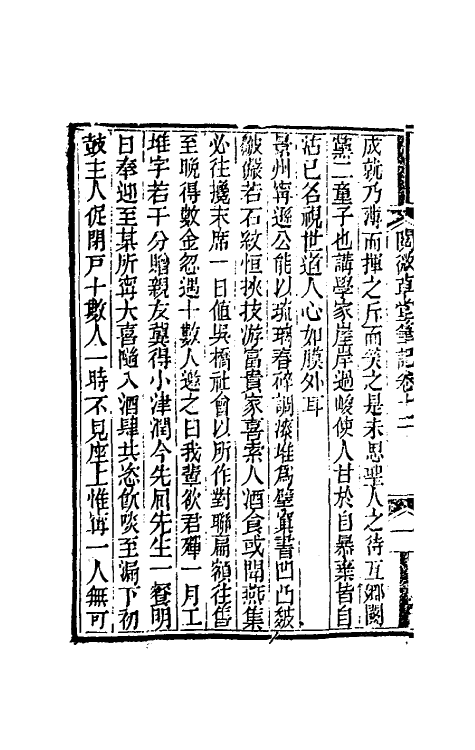 閱微草堂筆記卷十二
成就乃薄而揮之斥而笑之是未思聖人之待互鄉闕
黨二童子也講學家崖岸過峻使人甘於自暴棄皆自
沽已名視世道人心如膜外耳
景州甯遜公能以琉璃舂碎調漆堆爲擘窠書凹凸皴
皺儼若石紋恒挾技游富貴家喜索人酒食或聞燕集
必往攙末席一日値吳橋社會以所作對聯扁額往售
至晩得數金忽遇十數人邀之曰我輩欲君殫一月工
堆字若干分贈親友冀得小津潤今先屈先生一餐明
日奉迎至某所甯大喜隨入酒肆共恣飮啖至漏下初
鼓主人促閉戸十數人一時不見座上惟甯一人無可